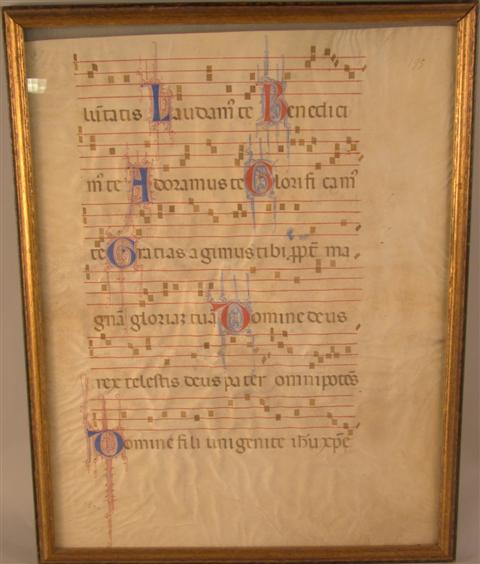 lūtatis Laudam᷒ te Benedici
m᷒ te Adoramus te Glorificam᷒
te Gratias agimus tibi ꝓpt̄ ma
gnā gloriaz tuā Domine deus
rex celestis deus pater omnipotēs
Domine fili unigenite ihū xp̄e